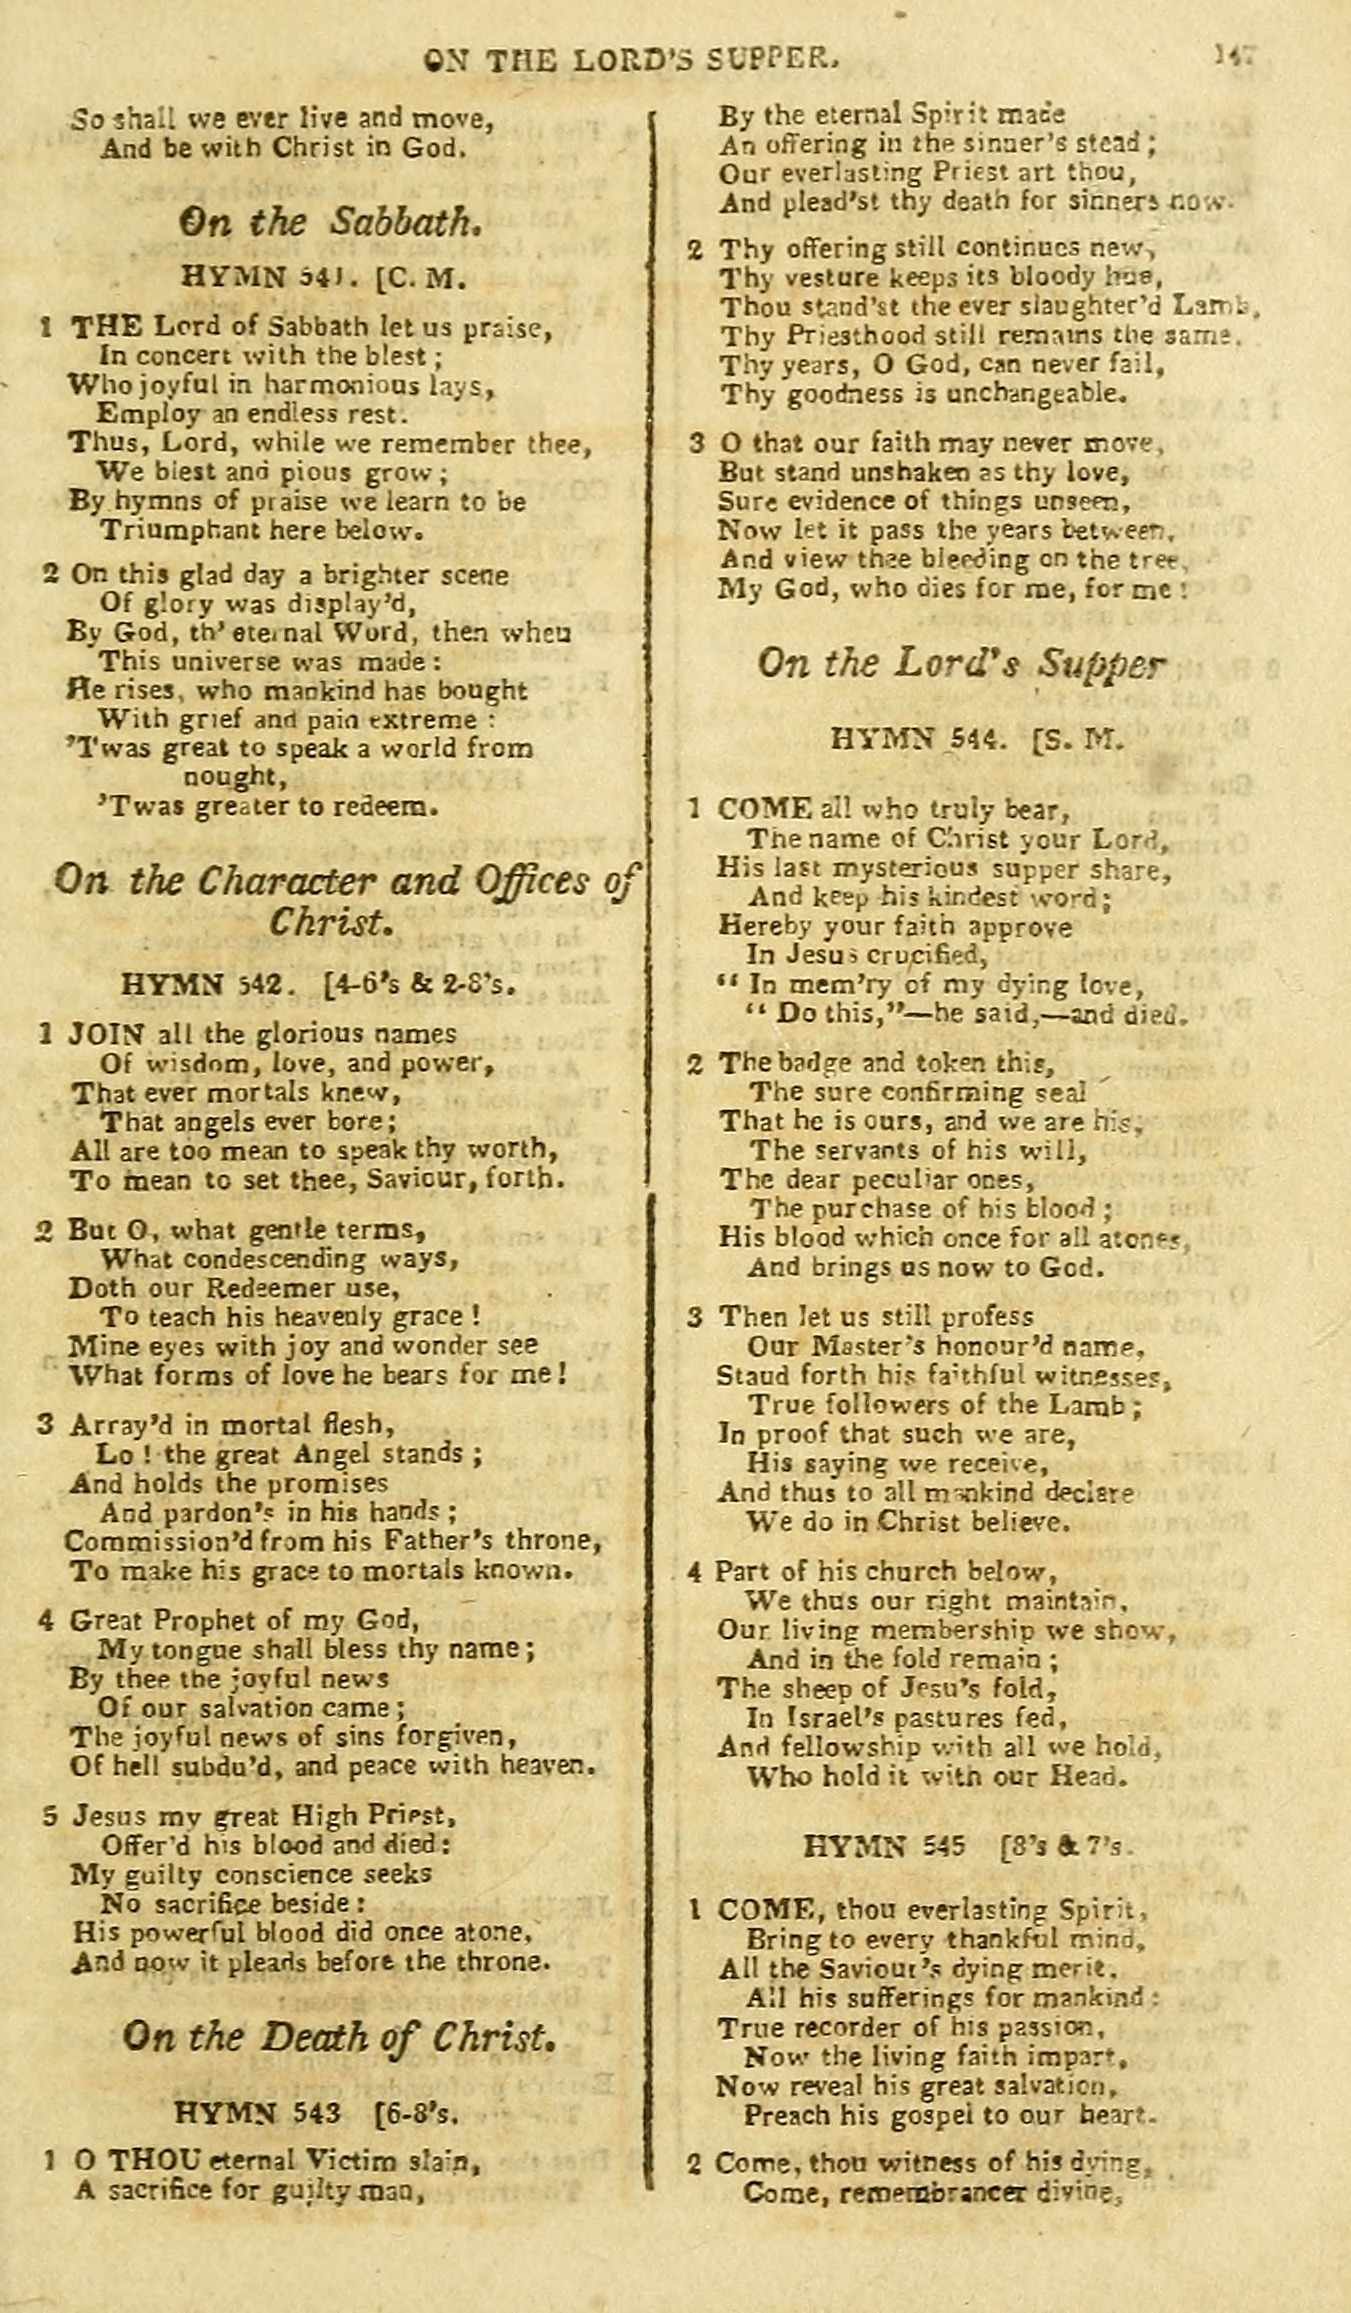 ON THE LORD'S SUPPER. 147
So shall we ever live and move,
And be with Christ in God.
On the Sabbath.
HYMN 541. [C. M.
1 THE Lord of Sabbath let us praise,
In concert with the blest;
Who joyful in harmonious lays,
Employ an endless rest.
Thus, Lord, while we remember thee,
We blest and pious grow;
By hymns of praise we learn to be
Triumphant here below.
2 On this glad day a brighter scene
Of glory was display'd,
By God, th' eternal Word, then when
This universe was made:
He rises, who mankind has bought
With grief and pain extreme:
'Twas great to speak a world from
nought,
'Twas greater to redeem.
On the Character and Offices of
Christ.
HYMN 542. [4-6's & 2-8's.
1 JOIN all the glorious names
Of wisdom, love, and power,
That ever mortals knew,
That angels ever bore;
All are too mean to speak thy worth,
To mean to set thee, Saviour, forth.
2 But O, what gentle terms,
What condescending ways,
Doth our Redeemer use,
To teach his heavenly grace!
Mine eyes with joy and wonder see
What forms of love he bears for me!
3 Array'd in mortal flesh,
Lo! the great Angel stands;
And holds the promises
And pardon's in his hands;
Commission'd from his Father's throne,
To make his grace to mortals known.
4 Great Prophet of my God,
My tongue shall bless thy name;
By thee the joyful news
Of our salvation came;
The joyful news of sins forgiven,
Of hell subdu'd, and peace with heaven.
5 Jesus my great High Priest,
Offer'd his blood and died:
My guilty conscience seeks
No sacrifice beside:
His powerful blood did once atone,
And now it pleads before the throne.
On the Death of Christ.
HYMN 543 [6-8's.
1 O THOU eternal Victim slain,
A sacrifice for guilty man,
By the eternal Spirit made
An offering in the sinner's stead;
Our everlasting Priest art thou,
And plead'st thy death for sinners now.
2 Thy offering still continues new,
Thy vesture keeps its bloody hue,
Thou stand'st the ever slaughter'd Lamb,
Thy Priesthood still remains the same.
Thy years, O God, can never fail,
Thy goodness is unchangeable.
3 O that our faith may never move,
But stand unshaken as thy love,
Sure evidence of things unseen,
Now let it pass the years between,
And view thee bleeding on the tree,
My God, who dies for me, for me!
On the Lord's Supper
HYMN 544. [S. M.
1 COME all who truly bear,
The name of Christ your Lord,
His last mysterious supper share,
And keep his kindest word;
Hereby your faith approve
In Jesus crucified,
"In mem'ry of my dying love,
"Do this,"—he said,—and died.
2 The badge and token this,
The sure confirming seal
That he is ours, and we are his,
The servants of his will,
The dear peculiar ones,
The purchase of his blood;
His blood which once for all atones,
And brings us now to God.
3 Then let us still profess
Our Master's honour'd name,
Stand forth his faithful witnesses,
True followers of the Lamb;
In proof that such we are,
His saying we receive,
And thus to all mankind declare
We do in Christ believe.
4 Part of his church below,
We thus our right maintain,
Our living membership we show,
And in the fold remain;
The sheep of Jesu's fold,
In Israel's pastures fed,
And fellowship with all we hold,
Who hold it with our Head.
HYMN 545 [8's & 7's.
1 COME, thou everlasting Spirit,
Bring to every thankful mind,
All the Saviour's dying merit,
All his sufferings for mankind:
True recorder of his passion,
Now the living faith impart,
Now reveal his great salvation,
Preach his gospel to our heart.
2 Come, thou witness of his dying,
Come, remembrancer divine,